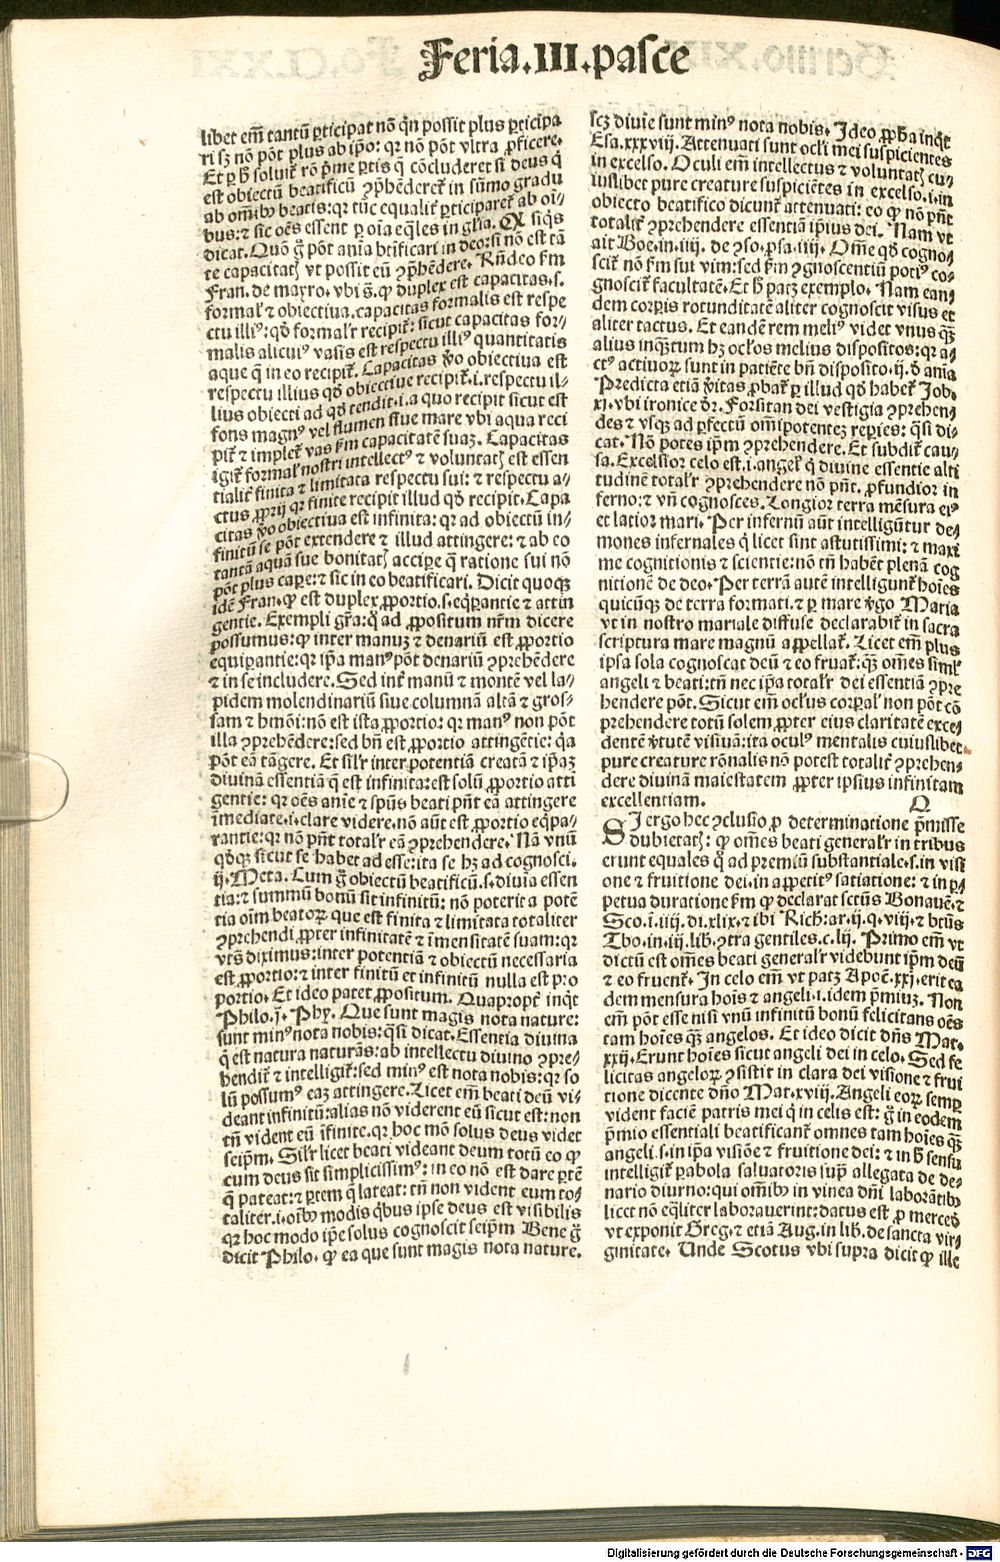 Feria.III.pasce
libet em̄ tantū ꝑticipat nō qn̄ possit plus ꝑticipa
ri sꝫ nō pōt plus ab ip̄o: qꝛ nō pōt vltra ꝓficere.
Et ꝑ ħ soluit᷑ rō pͥme ꝑtis q̄ cōcluderet si deus qͥ
est obiectū beatificū ꝯp̄hēderet᷑ in sūmo gradu
ab om̄ibꝰ beatis: qꝛ tūc equalit᷑ ꝑticiparēt ab oī⸗
bus: ⁊ sic oēs essent ꝑ oīa eq̄les in gl̄ia. Ex siq̄s
dicat. Quō g̊ pōt anīa btīficari in deo: si nō est tā
te capacitatꝭ vt possit eū ꝯp̄hēdere. Rn̄deo ẜm
Fran. de mayro. vbi s̄. ꝙ duplex est capacitas. s.
formal᷑ ⁊ obiectiua. capacitas formalis est respe
ctu illiꝰ: qd̄ formal᷑r recipit᷑: sicut capacitas for⸗
malis alicuiꝰ vasis est respectu illiꝰ quantitatis
aque q̄ in eo recipit᷑. Capacitas ꝟo obiectiua est
respectu illius qd̄ obiectiue recipit᷑. i. respectu il⸗
lius obiecti ad qd̄ tendit. i. a quo recipit sicut est
fons magnꝰ vel flumen siue mare vbi aqua reci
pit᷑ ⁊ implet᷑ vas ẜm capacitatē suaꝫ. Capacitas
igit᷑ formal᷑ nostri intellectꝰ ⁊ voluntatꝭ est essen
tialit᷑ finita ⁊ limitata respectu sui: ⁊ respectu a⸗
ctus ꝓprij qꝛ finite recipit illud qd̄ recipit. Capa
citas ꝟo obiectiua est infinita: qꝛ ad obiectū in⸗
finitū se pōt extendere ⁊ illud attingere: ⁊ ab eo
tantā aquā sue bonitatꝭ accipe q̄ ratione sui nō
pōt plus caꝑe: ⁊ sic in eo beatificari. Dicit quoqꝫ
idē Fran. ꝙ est duplex ꝓportio. s. eqͥparantie ⁊ attin
gentie. Exempli gr̄a: qͥ ad ꝓpositum nr̄m dicere
possumus: ꝙ inter manuꝫ ⁊ denariū est ꝓportio
equipantie: qꝛ ip̄a manꝰ pōt denariū ꝯprehēdere
⁊ in se includere. Sed int᷑ manū ⁊ montē vel la⸗
pidem molendinariū siue columnā altā ⁊ gros⸗
sam ⁊ hmōi: nō est ista ꝓportio: qꝛ manꝰ non pōt
illa ꝯprehēdere: sed bn̄ est ꝓportio attingētie: qͥa
pōt eā tāgere. Et sil᷑r inter potentiā creatā ⁊ ip̄aꝫ
diuinā essentiā q̄ est infinita: est solū ꝓportio atti
gentie: qꝛ oēs anīe ⁊ spūs beati pn̄t eā attingere
īmediate. i. clare videre. nō aūt est ꝓportio eqͥpa⸗
rantie: qꝛ nō pn̄t total᷑r eā ꝯprehendere. Nā vnū
qd̄qꝫ sicut se habet ad esse: ita se hꝫ ad cognosci.
ij. Meta. Cum g̊ obiectū beatificū. s. diuīa essen
tia: ⁊ summū bonū sit infinitū: nō poterit a potē
tia oīm beatoꝝ que est finita ⁊ limitata totaliter
ꝯprehendi ꝓpter infinitatē ⁊ īmensitatē suam: qꝛ
vts̄ diximus: inter potentiā ⁊ obiectū necessaria
est ꝓportio: ⁊ inter finitū et infinitū nulla est pro
portio. Et ideo patet ꝓpositum. Quapropt᷑ inqͥt
Philo. j. Phy. Que sunt magis nota nature:
sunt minꝰ nota nobis: qͣsi dicat. Essentia diuina
q̄ est natura naturās: ab intellectu diuino ꝯpre⸗
hendit᷑ ⁊ intelligit᷑: sed minꝰ est nota nobis: qꝛ so
lū possumꝰ eaꝫ attingere. Licet em̄ beati deū vi⸗
deant infinitū: alias nō viderent eū sicut est: non
tn̄ vident eū īfinite. qꝛ hoc mō solus deus videt
seip̄m. Sil᷑r licet beati videant deum totū eo ꝙ
cum deus sit simplicissimꝰ: in eo nō est dare ꝑtē
q̄ pateat: ⁊ ꝑtem q̄ lateat: tn̄ non vident eum to⸗
taliter. i. oībꝰ modis qͥbus ipse deus est visibilis
qꝛ hoc modo ip̄e solus cognoscit seip̄m Bene g̊
dicit Philo. ꝙ ea que sunt magis nota nature.
scꝫ diuīe sunt minꝰ nota nobis. Ideo ꝓph̄a inqͥt
Esa. xxxviij. Attenuati sunt ocl᷑i mei suspicientes
in excelso. Oculi em̄ intellectus ⁊ voluntatꝭ cu⸗
iuslibet pure creature suspiciētes in excelso. i. in
obiecto beatifico dicunt᷑ attenuati: eo ꝙ nō pn̄t
totalit᷑ ꝯprehendere essentiā ip̄ius dei. Nam vt
ait Boe. in. iiij. de ꝯso. ꝓsa. iiij. Om̄e qd̄ cogno⸗
scit᷑ nō ẜm sui vim: sed ẜm ꝯgnoscentiū potiꝰ co⸗
gnoscit᷑ facultatē. Et ħ patꝫ exemplo. Nam ean⸗
dem corꝑis rotunditatē aliter cognoscit visus et
aliter tactus. Et eandē rem meliꝰ videt vnus qͣꝫ
alius inqͣꝫtum hꝫ ocl᷑os melius dispositos: qꝛ a⸗
ctꝰ actiuoꝝ sunt in patiēte bn̄ disposito. ij. d̄ anīa
Predicta etiā ꝟitas ꝓbat᷑ ꝑ illud qd̄ habet᷑ Job.
xj. vbi ironice dr̄. Forsitan dei vestigia ꝯprehen⸗
des ⁊ vsqꝫ ad ꝑfectū om̄ipotentez reꝑies: qͣsi di⸗
cat. Nō potes ip̄m ꝯprehendere. Et subdit᷑ cau⸗
sa. Excelsior celo est. i. angel᷑ qͥ diuine essentie alti
tudinē total᷑r ꝯprehendere nō pn̄t. ꝓfundior in
ferno: ⁊ vn̄ cognosces. Longior terra mēsura eiꝰ
et latior mari. Per infernū aūt intelligūtur de⸗
mones infernales qͥ licet sint astutissimi: ⁊ maxi
me cognitionis ⁊ scientie: nō tn̄ habēt plenā cog
nitionē de deo. Per terrā autē intelligunt᷑ hoīes
quicūqꝫ de terra formati. ⁊ ꝑ mare ꝟgo Maria
vt in nostro mariale diffuse declarabit᷑ in sacra
scriptura mare magnū appellat᷑. Licet em̄ plus
ipsa sola cognoscat deū ⁊ eo fruat᷑: qͣꝫ om̄es siml᷑
angeli ⁊ beati: tn̄ nec ip̄a total᷑r dei essentiā ꝯpre
hendere pōt. Sicut em̄ ocl᷑us corꝑal᷑ non pōt cō
prehendere totū solem ꝓpter eius claritatē exce⸗
dentē ꝟtutē visiuā: ita oculꝰ mentalis cuiuslibet
pure creature rōnalis nō potest totalit᷑ ꝯprehen⸗
dere diuinā maiestatem ꝓpter ipsius infinitam
excellentiam. Q
SI ergo hec ꝯclusio ꝓ determinatione pͥmisse
dubietatꝭ: ꝙ om̄es beati general᷑r in tribus
erunt equales qͥ ad premiū substantiale. s. in visi
one ⁊ fruitione dei. in appetitꝰ satiatione: ⁊ in ꝑ⸗
petua duratione ẜm ꝙ declarat sctūs Bonauē. ⁊
Sco. ī. iiij. di. xlix. ⁊ ibi Rich: ar. ij. q. viij. ⁊ btūs
Tho. in. iij. lib. ꝯtra gentiles. c. lij. Primo em̄ vt
dictū est om̄es beati general᷑r videbunt ip̄m deū
⁊ eo fruent᷑. In celo em̄ vt patꝫ Apoc̄. xxj. erit ea
dem mensura hoīs ⁊ angeli. i. idem pͥmiuꝫ. Non
em̄ pōt esse nisi vnū infinitū bonū felicitans oēs
tam hoīes qͣꝫ angelos. Et ideo dicit dn̄s Mat.
xxij. Erunt hoīes sicut angeli dei in celo. Sed fe
licitas angeloꝝ ꝯsistit in clara dei visione ⁊ frui
tione dicente dn̄o Mat. xviij. Angeli eoꝝ semꝑ
vident faciē patris mei qͥ in celis est: g̊ in eodem
pͥmio essentiali beatificant᷑ omnes tam hoīes qͣꝫ
angeli. s. in ip̄a visiōe ⁊ fruitione dei: ⁊ in ħ sensu
intelligit᷑ ꝑabola saluatoris sup̄ allegata de de⸗
nario diurno: qui om̄ibꝰ in vinea dn̄i laborātibꝰ
licet nō eq̄liter laborauerint: datus est ꝓ mercede
vt exponit Greg. ⁊ etiā Aug. in lib. de sancta vir⸗
ginitate. Unde Scotus vbi supra dicit ꝙ ille
Digitalisierung gefördert durch die Deutsche Forschungsgemeinschaft - DFG